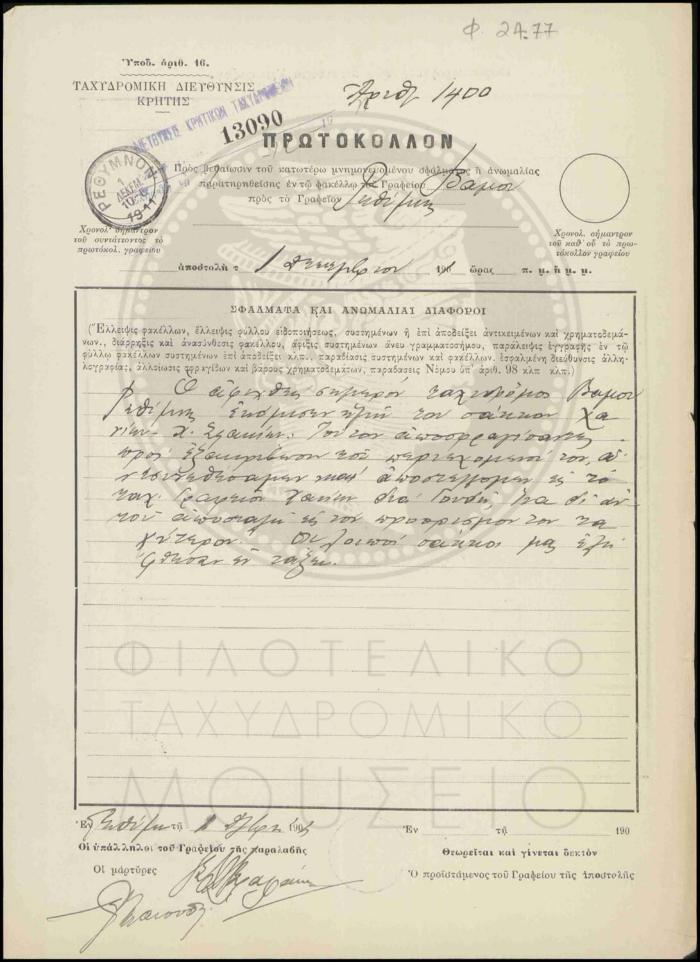 Φ. 24.77
Ὑποδ. ἀριθ. 16.
ΤΑΧΥΔΡΟΜΙΚΗ ΔΙΕΥΘΥΝΣΙΣ
ΚΡΗΤΗΣ
Ἀριθ 1400
ΔΙΕΥΘΥΝΣΙΣ ΚΡΗΤΙΚΩΝ ΤΑΧΥΔΡΟΜΕΙΩΝ
13090
ΠΡΩΤΟΚΟΛΛΟΝ
ΡΕΘΥΜΝΟΝ
1
ΔΕΚΕΜ
1911
Πρὸς βεβαίωσιν τοῦ κατωτέρω μνημονευομένου σφάλματος ἢ ἀνωμαλίας
παρατηρηθείσης ἐν τῷ φακέλλῳ τοῦ Γραφείου Βάμου
πρὸς τὸ Γραφεῖον Ρεθύμνης
Χρονολ. σήμαντρον
τοῦ συντάττοντος τὸ
πρωτόκολ. γραφείου
Χρονολ. σήμαντρον
τοῦ καθ' οὗ τὸ πρω-
τόκολλον γραφείου
ἀποστολὴ τ 1 Δεκεμβρίου 191 ὥρας π. μ. ἢ μ. μ.
ΣΦΑΛΜΑΤΑ ΚΑΙ ΑΝΩΜΑΛΙΑΙ ΔΙΑΦΟΡΟΙ
(Ἔλλειψις φακέλλων, ἔλλειψις φύλλου εἰδοποιήσεως, συστημένων ἢ ἐπὶ ἀποδείξει ἀντικειμένων καὶ χρηματοδεμά-
των., διάρρηξις καὶ ἀνασύνθεσις φακέλλου, ἄφιξις συστημένων ἄνευ γραμματοσήμου, παράλειψις ἐγγραφῆς ἐν τῷ
φύλλῳ φακέλλων συστημένων ἐπὶ ἀποδείξει κλπ., παραβίασις συστημένων καὶ φακέλλων. ἐσφαλμένη διεύθυνσις ἀλλη-
λογραφίας, ἀλλοίωσις σφραγίδων καὶ βάρους χρηματοδεμάτων, παραβάσεις Νόμου ὑπ' ἀριθ. 98 κλπ κλπ.)
Ὁ ἀφιχθεὶς σήμερον ταχυδρόμος Βάμου
Ρεθύμνης ἐκόμισεν ἡμῖν τὸν σάκκον Χα
νίων - Σφακίων. Τοῦτον ἀποσφραγίσαντες
πρὸς ἐξακρίβωσιν τοῦ περιεχομένου του,
ἀποστέλλομεν εἰς τὸ
ταχ. Γραφεῖον Χανίων διὰ ἵνα δι' αὐ
τοῦ ἀποσταλῇ εἰς τὸν προορισμόν του τα
χύτερον. Οἱ λοιποὶ σάκκοι μας ἐλή
φθησαν ἐν τάξει.
ΦΙΛΟΤΕΛΙΚΟ
ΤΑΧΥΔΡΟΜΙΚΟ
ΜΟΥΣΕΙΟ
Ἐν Ρεθύμνῃ τῇ 1 190
Ἐν τῇ 190
Οἱ ὑπάλληλοι τοῦ Γραφείου τῆς παραλαβῆς
Θεωρεῖται καὶ γίνεται δεκτὸν
Οἱ μάρτυρες
Ὁ προϊστάμενος τοῦ Γραφείου τῆς ἀποστολῆς